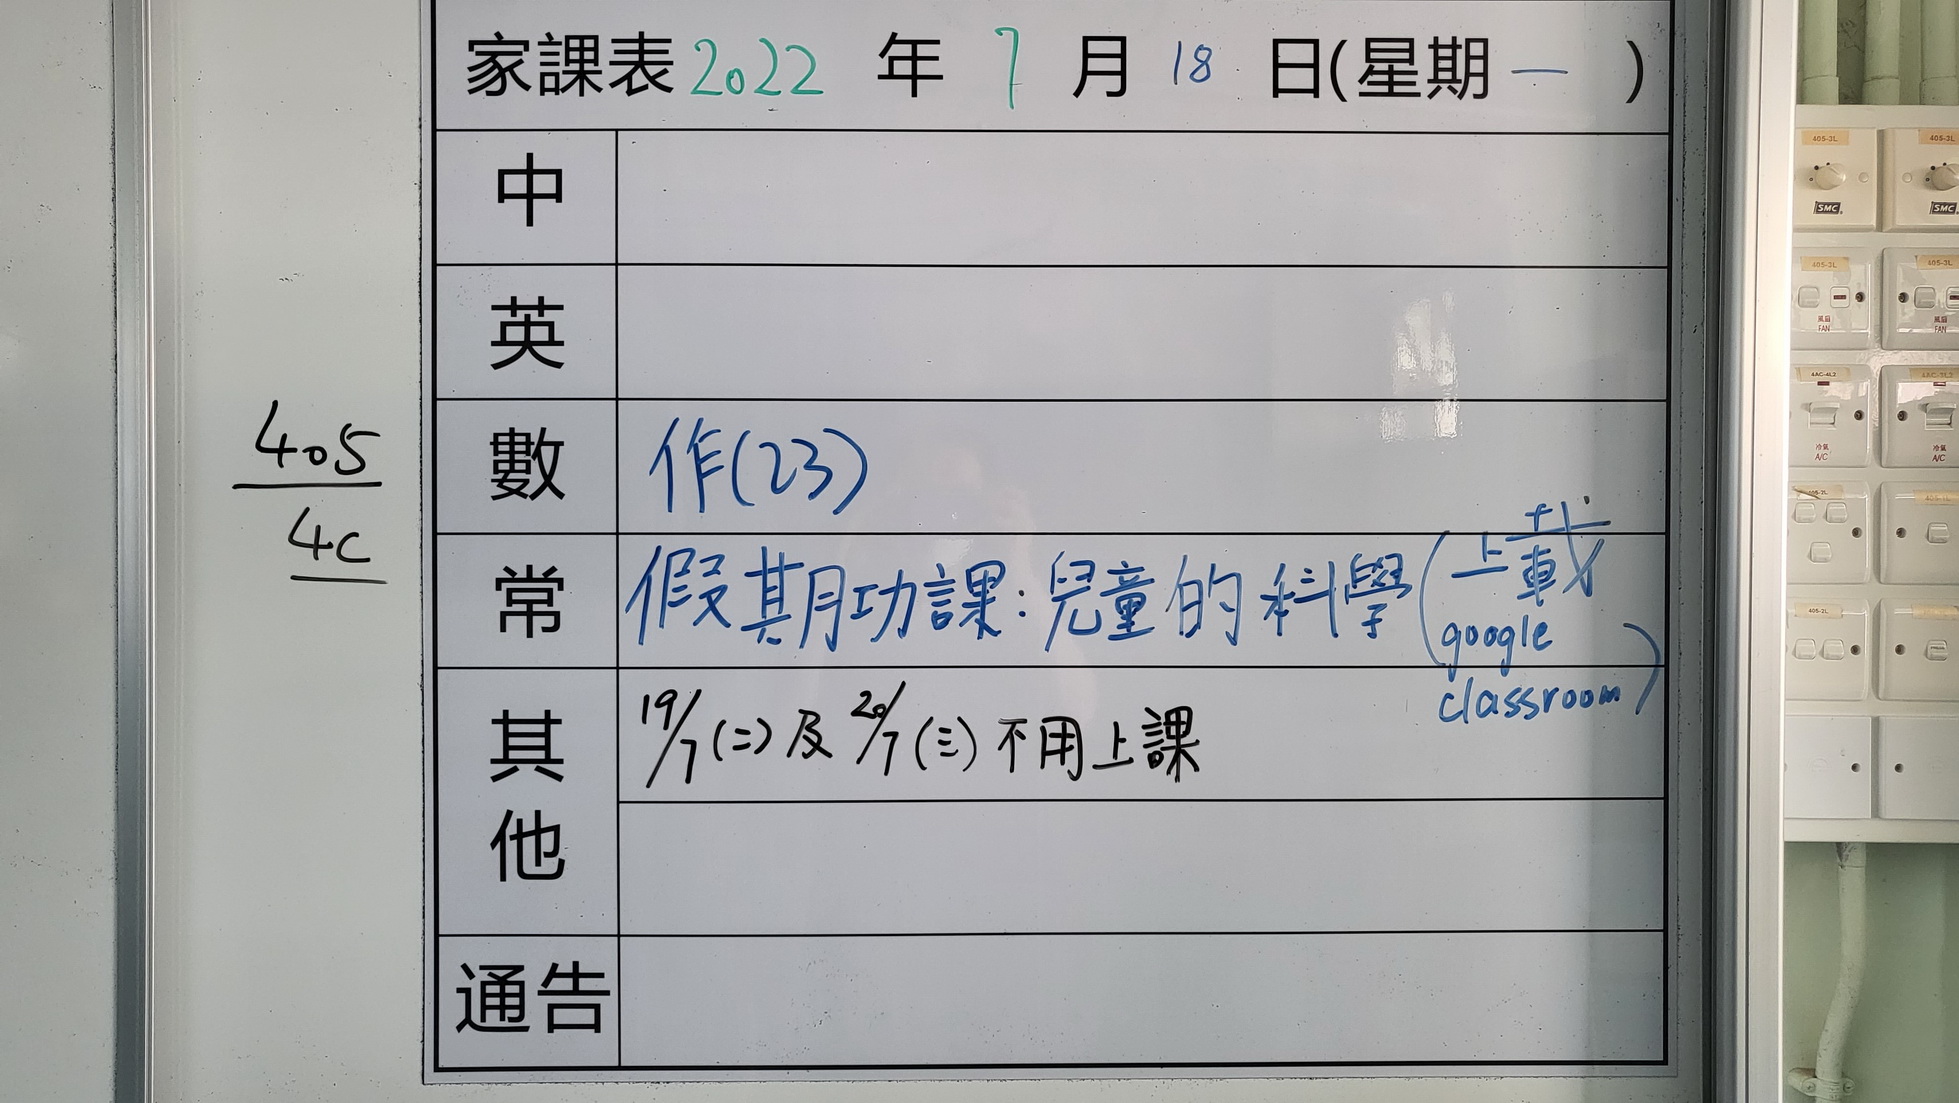 家課表 2022 年 7 月 18 日(星期一)
中
英
數 作(23)
常 假期功課:兒童的科學(上載
google
classroom)
其他 19/7(二)及20/7(三)不用上課
通告
405
4C
405-3L
405-3L
SMC
SMC
405-3L
405-3L
風扇
FAN
風扇
FAN
4AC-4L2
冷氣
A/C
冷氣
A/C
405-2L